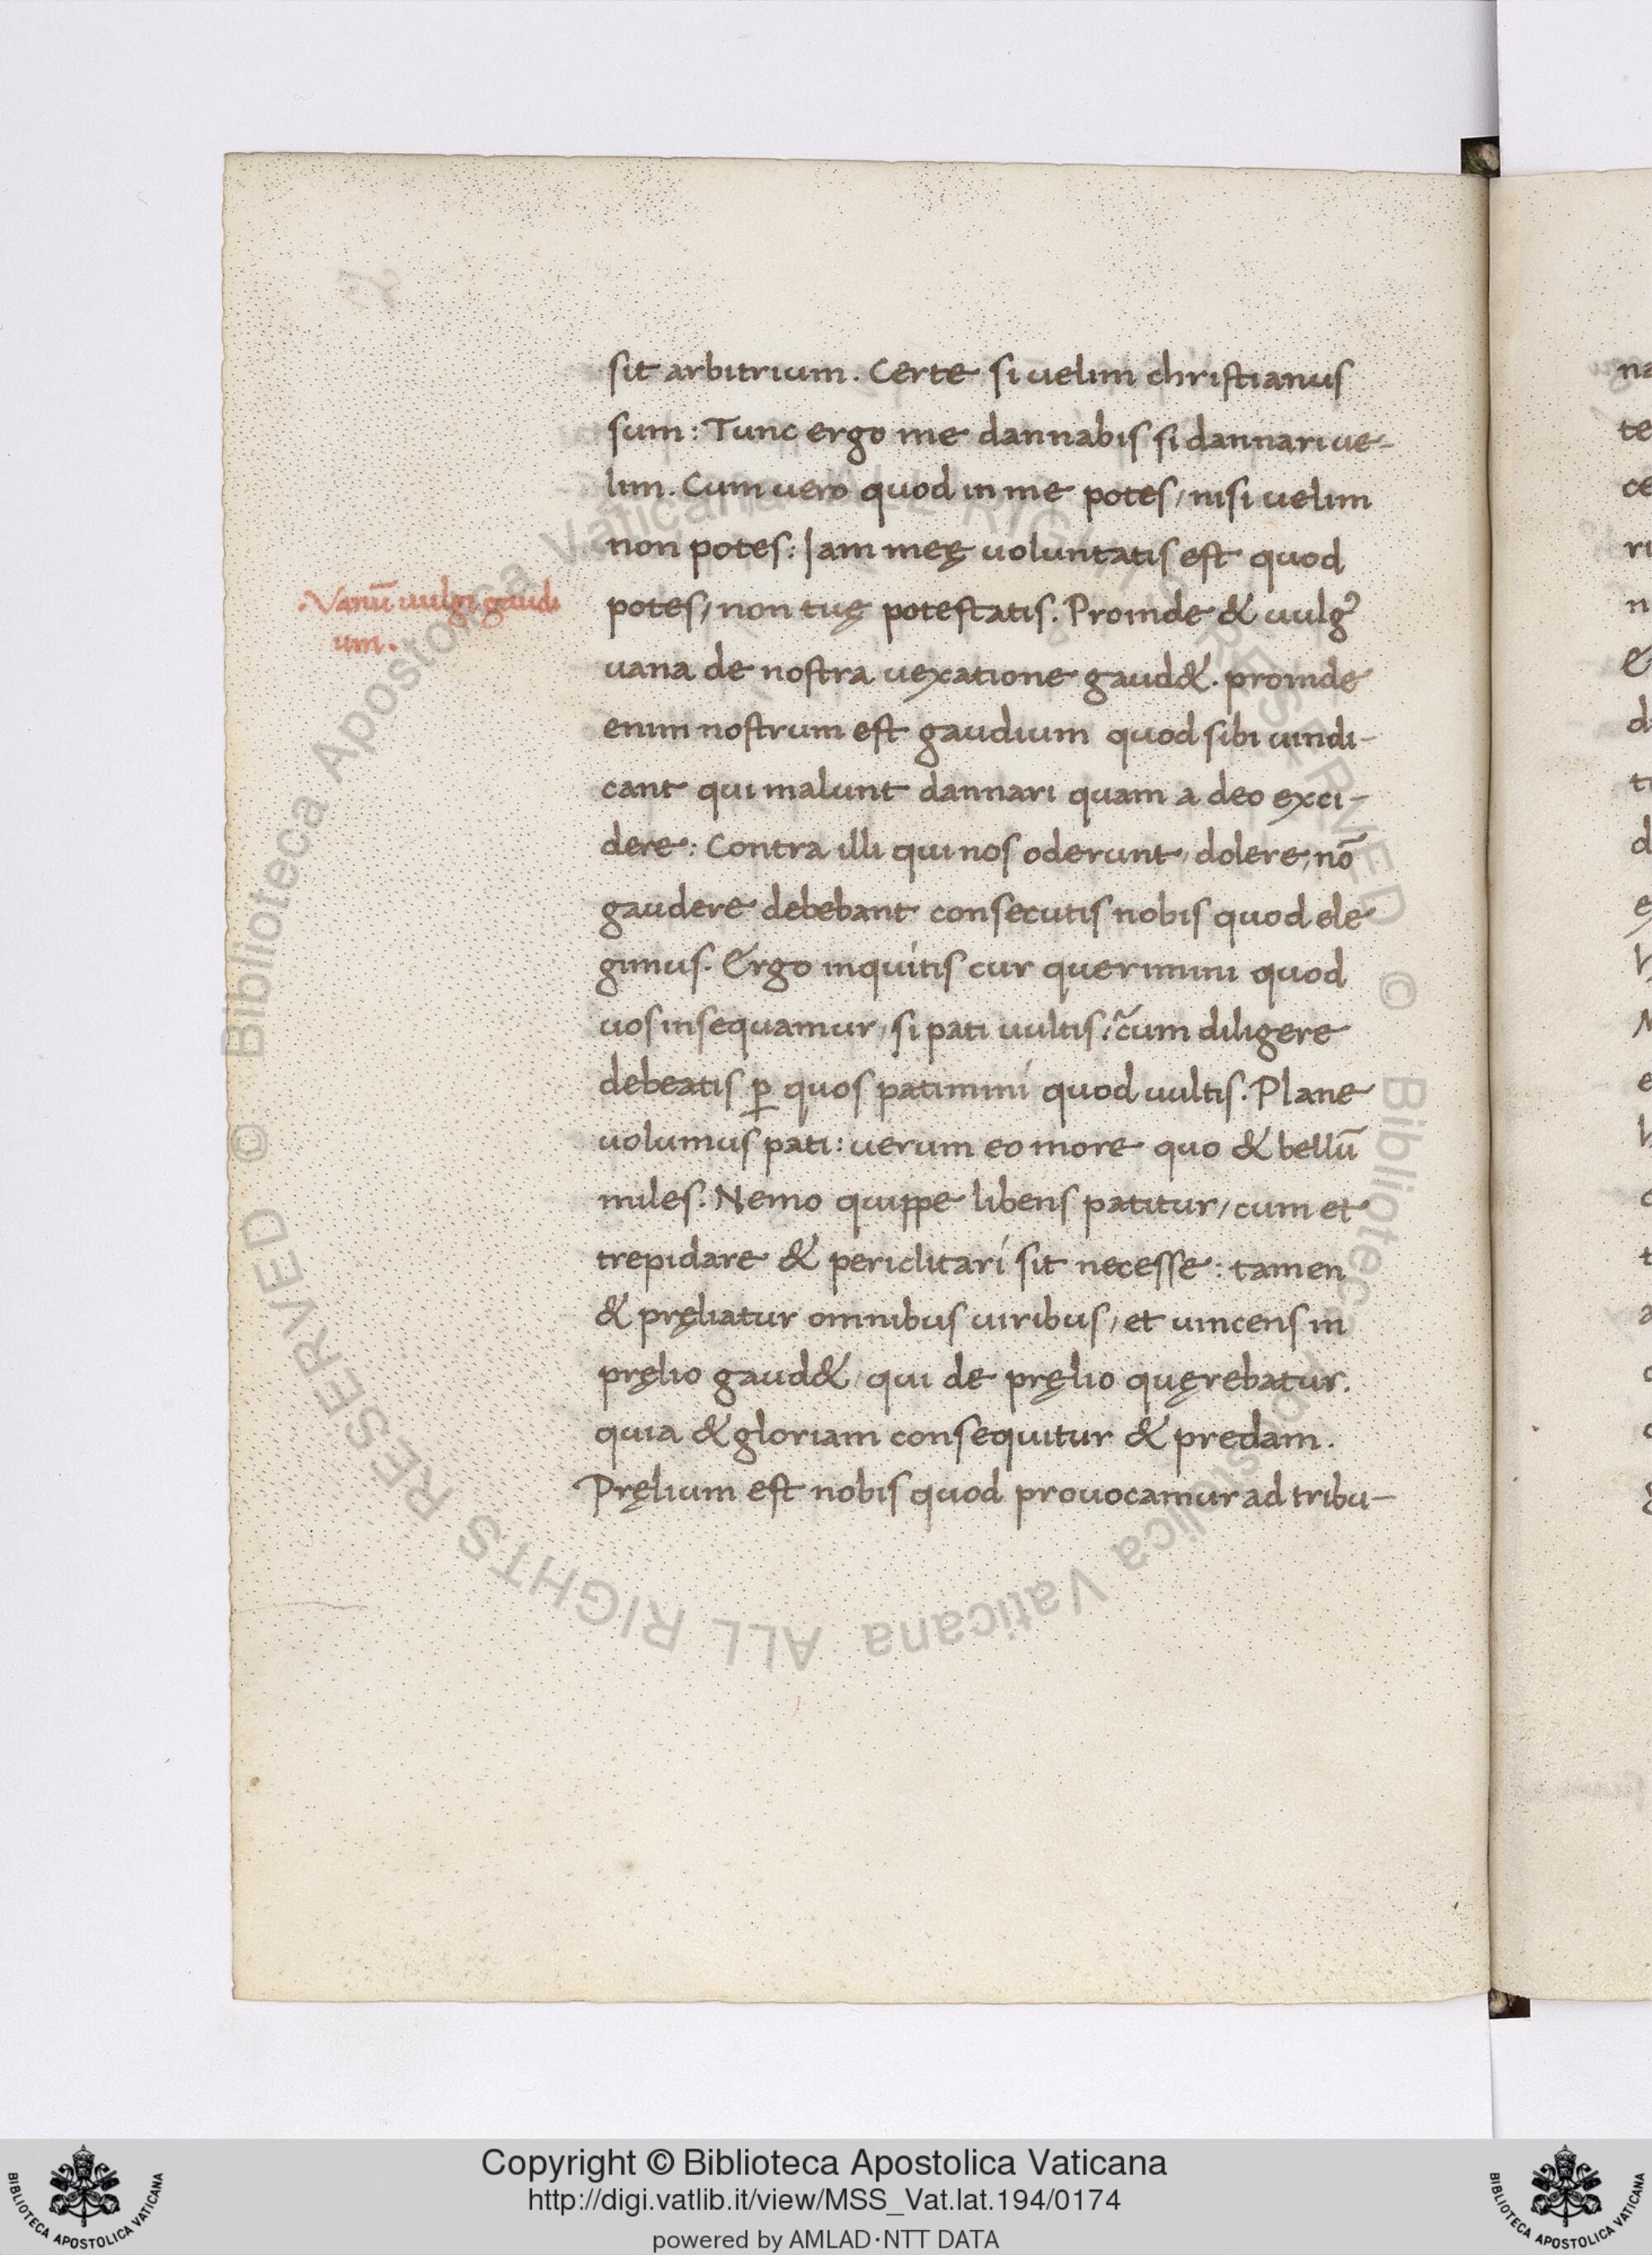 sit arbitrium. Certe si uelim christianus
sum: Tunc ergo me dannabis si dannari ue-
lim. Cum uero quod in me potes, nisi uelim
non potes: Jam meę uoluntatis est quod
.Vanū uulgi gaudi
um.
potes, non tuę potestatis. Proinde & uulg᾽
uana de nostra uexatione gaud&. proinde
enim nostrum est gaudium quod sibi uindi-
cant qui malunt dannari quam a deo exci-
dere: Contra illi qui nos oderunt, dolere, nō
gaudere debebant consecutis nobis quod ele
gimus. Ergo inquitis cur querimini quod
uos insequamur, si pati uultis? cum diligere
debeatis ꝑ quos patimini quod uultis. Plane
uolumus pati: uerum eo more quo & bellū
miles. Nemo quippe libens patitur, cum et
trepidare & periclitari sit necesse: tamen
& pręliatur omnibus uiribus, et uincens in
pręlio gaud&, qui de pręlio quęrebatur.
quia & gloriam consequitur & predam.
Pręlium est nobis quod prouocamur ad tribu-
Copyright © Biblioteca Apostolica Vaticana
http://digi.vatlib.it/view/MSS_Vat.lat.194/0174
powered by AMLAD·NTT DATA
© Biblioteca Apostolica Vaticana ALL RIGHTS RESERVED © Biblioteca Apostolica Vaticana ALL RIGHTS RESERVED
BIBLIOTECA APOSTOLICA VATICANA
BIBLIOTECA APOSTOLICA VATICANA